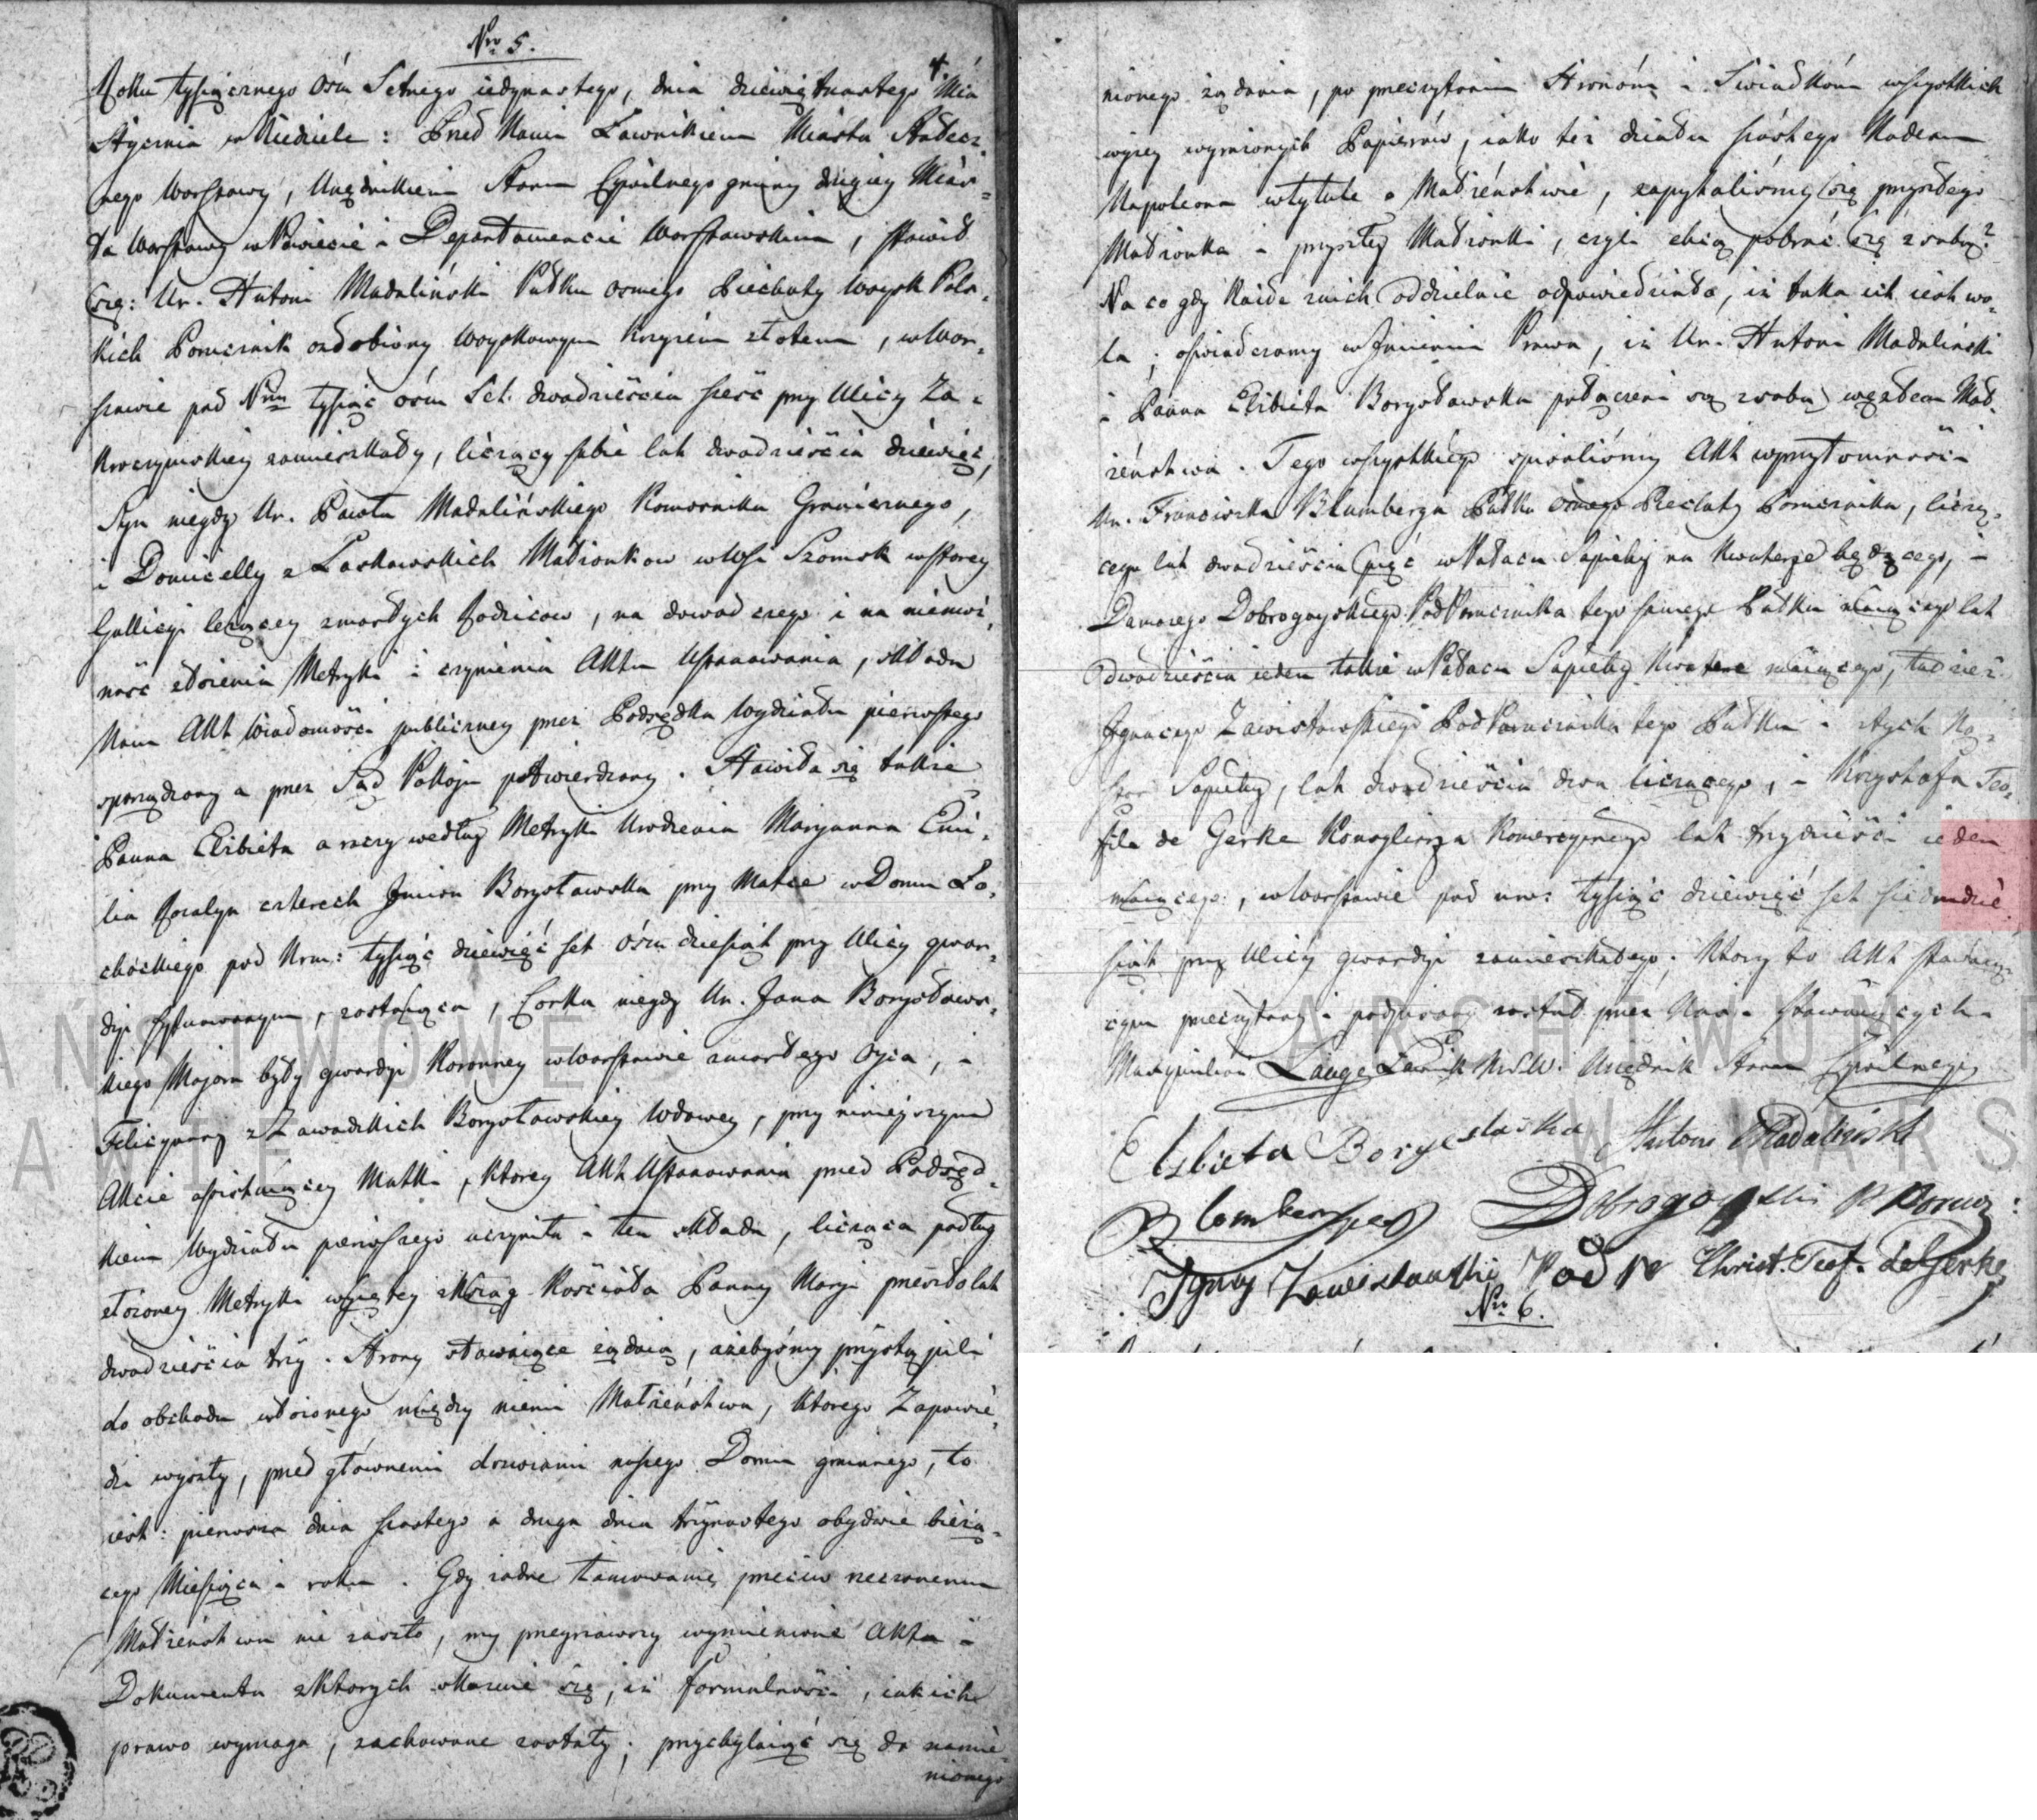 Nro 5.
4.
Roku tysiącznego óśm Setnego iedynastego, dnia dziewiętnastego Mca
Stycznia w Niedziele: Przed Nami Ławnikiem Miasta Stołecz,
nego Warszawy, Urzędnikiem Stanu Cywilnego gminy drugiey Mias=
ta Warszawy w Powiecie i Departamencie Warszawskim, stawił
się: Ur. Antoni Madaliński Pułku osmego Piechoty Woysk Pols,
kich Porucznik ozdobiony Woyskowym Krzyżem złotem, w War,
szawie pod Nrem tysiąc óśm Set. dwadzieścia sześć przy Ulicy Za=
kroczymskiey zamieszkały, liczący sobie lat dwadzieścia dziewięć,
Syn niegdy Ur. Pawła Madalińskiego Komornika Granicznego,
i Domicelly z Laskowskich Małżonkow w Wsi Szomsk w starey
Gallicyi leżącey zmarłych Rodzicow, na dowod czego i na niemoż,
ność złożenia Metryki i czynienia Aktu Uszanowania, składa
Nam Akt Wiadomości publiczney przez Podsędka Wydziału pierwszego
sporządzony a przez Sąd Pokoju potwierdzony. Stawiła się także
Panna Elżbieta a raczy według Metryki Urodzenia Maryanna Emi,
lia Rozalya czterech Imion Borysławska przy Matce w Domu Ło,
chockiego pod Nrm: tysiąc dziewięć set óśm dziesiąt przy Ulicy gwar,
dyi sytuowanym, zostaiąca, Corka niegdy Ur. Jana Borysławs,
kiego Majora były gwardyi Koronney w Warszawie zmarłego Oyca, i
Felicyanny z Zawadzkich Borysławskiey Wdowey, przy nineyszym
Akcie assistuiącey Matki, ktorey Akt Uszanowania przed Podsęd,
kiem Wydziału pierwszego uczyniła i ten składa, licząca podług
złożoney Metryki wyiętey z Ksiąg Kościoła Panny Maryi przeszło lat
dwadzieścia trzy. Strony stawaiące żądaią, ażebyśmy przystąpili
do obchodu ułożonego między niemi Małżeństwa, ktorego Zapowie,
dzi wyszły, przed głównemi drzwiami naszego Domu gminnego, to
iest: pierwsza dnia szostego a druga dnia trzynastego obydwie bieżą,
cego Miesiąca i roku. Gdy żadne tamowanie przeciw rzeczonemu
Małżeństwu nie zaszło, my przeyrzawszy wymienione Akta i
Dokumenta z ktorych okazuie się, iż formalności, iakich
prawo wymaga, zachowane zostały; przychylaiąć się do namie,
nionego
nionego żądania, po przeczytaniu Stronóm i Swiadkóm wszystkich
wyżey wyrażonych Papierów, iako też działu szóstego Kodexu
Napoleona w tytule o Małżeństwie, zapytaliśmy się przyszłego
Małżonka i przyszłey Małżonki, czyli chcą pobrać się z sobą?
Na co gdy każde z nich oddzielnie odpowiedziało, iż taka ich iest wo,
la; oświadczamy w Imieniu Prawa, iż Ur. Antoni Madaliński
i Panna Elżbieta Borysławska połączeni są z sobą węzłem Mał,
żeństwa. Tego wszystkiego spisaliśmy Akt w przytomności
Ur. Franciszka Blumberga Pułku osmego Piechoty Porucznika, liczą,
cego lat dwadzieścia pięć w Pałacu Sapiehy na kwaterze będącego, i
Damazego Dobrogoyskiego PodPorucznika tego samego Pułku maiącego lat
Dwadzieścia ieden także w Pałacu Sapiehy Kwaterę maiącego, tudzież
Ignacego Zawistowskiego PodPorucznika tego Pułku i z tych Ko,
szar Sapiehy, lat dwadzieścia dwa liczącego, i Krzysztofa Teo,
fila de Gerke Konsyliarza Komercyinego lat trzydzieści ieden
maiącego, w Warszawie pod nro: tysiąc dziewięć set siedmdzie,
siąt przy Ulicy gwardyi zamieszkałego; Ktory to Akt stawaią,
cym przeczytany i podpisany został przez Nas i stawaiących.
Maxymilian Lange Ławnik M.S.W. Urzędnik Stanu Cywilnego
Elzbieta Borysławska Antoni Madaliński
Blomberg Dobrogoyski P Porucz:
Ignacy Zawistowski Pod Po Christ. Teof. de Gerke
Nro 6.